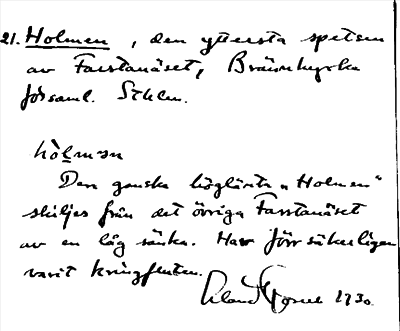 21. Holmen, den yttersta spetsen
av Farstanäset, Brännkyrka
församl. Sthlm.
hòlmən
Den ganska höglänta „Holmen"
skiljes från det övriga Farstanäset
av en låg sänka. Har förr säkerligen
varit kringfluten.
1930.